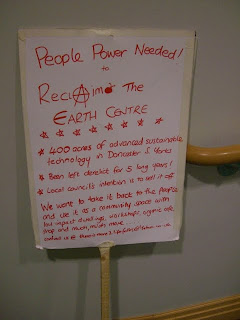 People Power Needed!
to
ReclAim The
EARTH CENTRE
400 acres of advanced sustainable
technology in Doncaster S. Yorks
Been left derelict for 5 long years!
Local council's intention is to sell it off
We want to take it back to the people
and use it as a community space with
low impact dwellings, workshops, organic cafe,
shop and much, much more